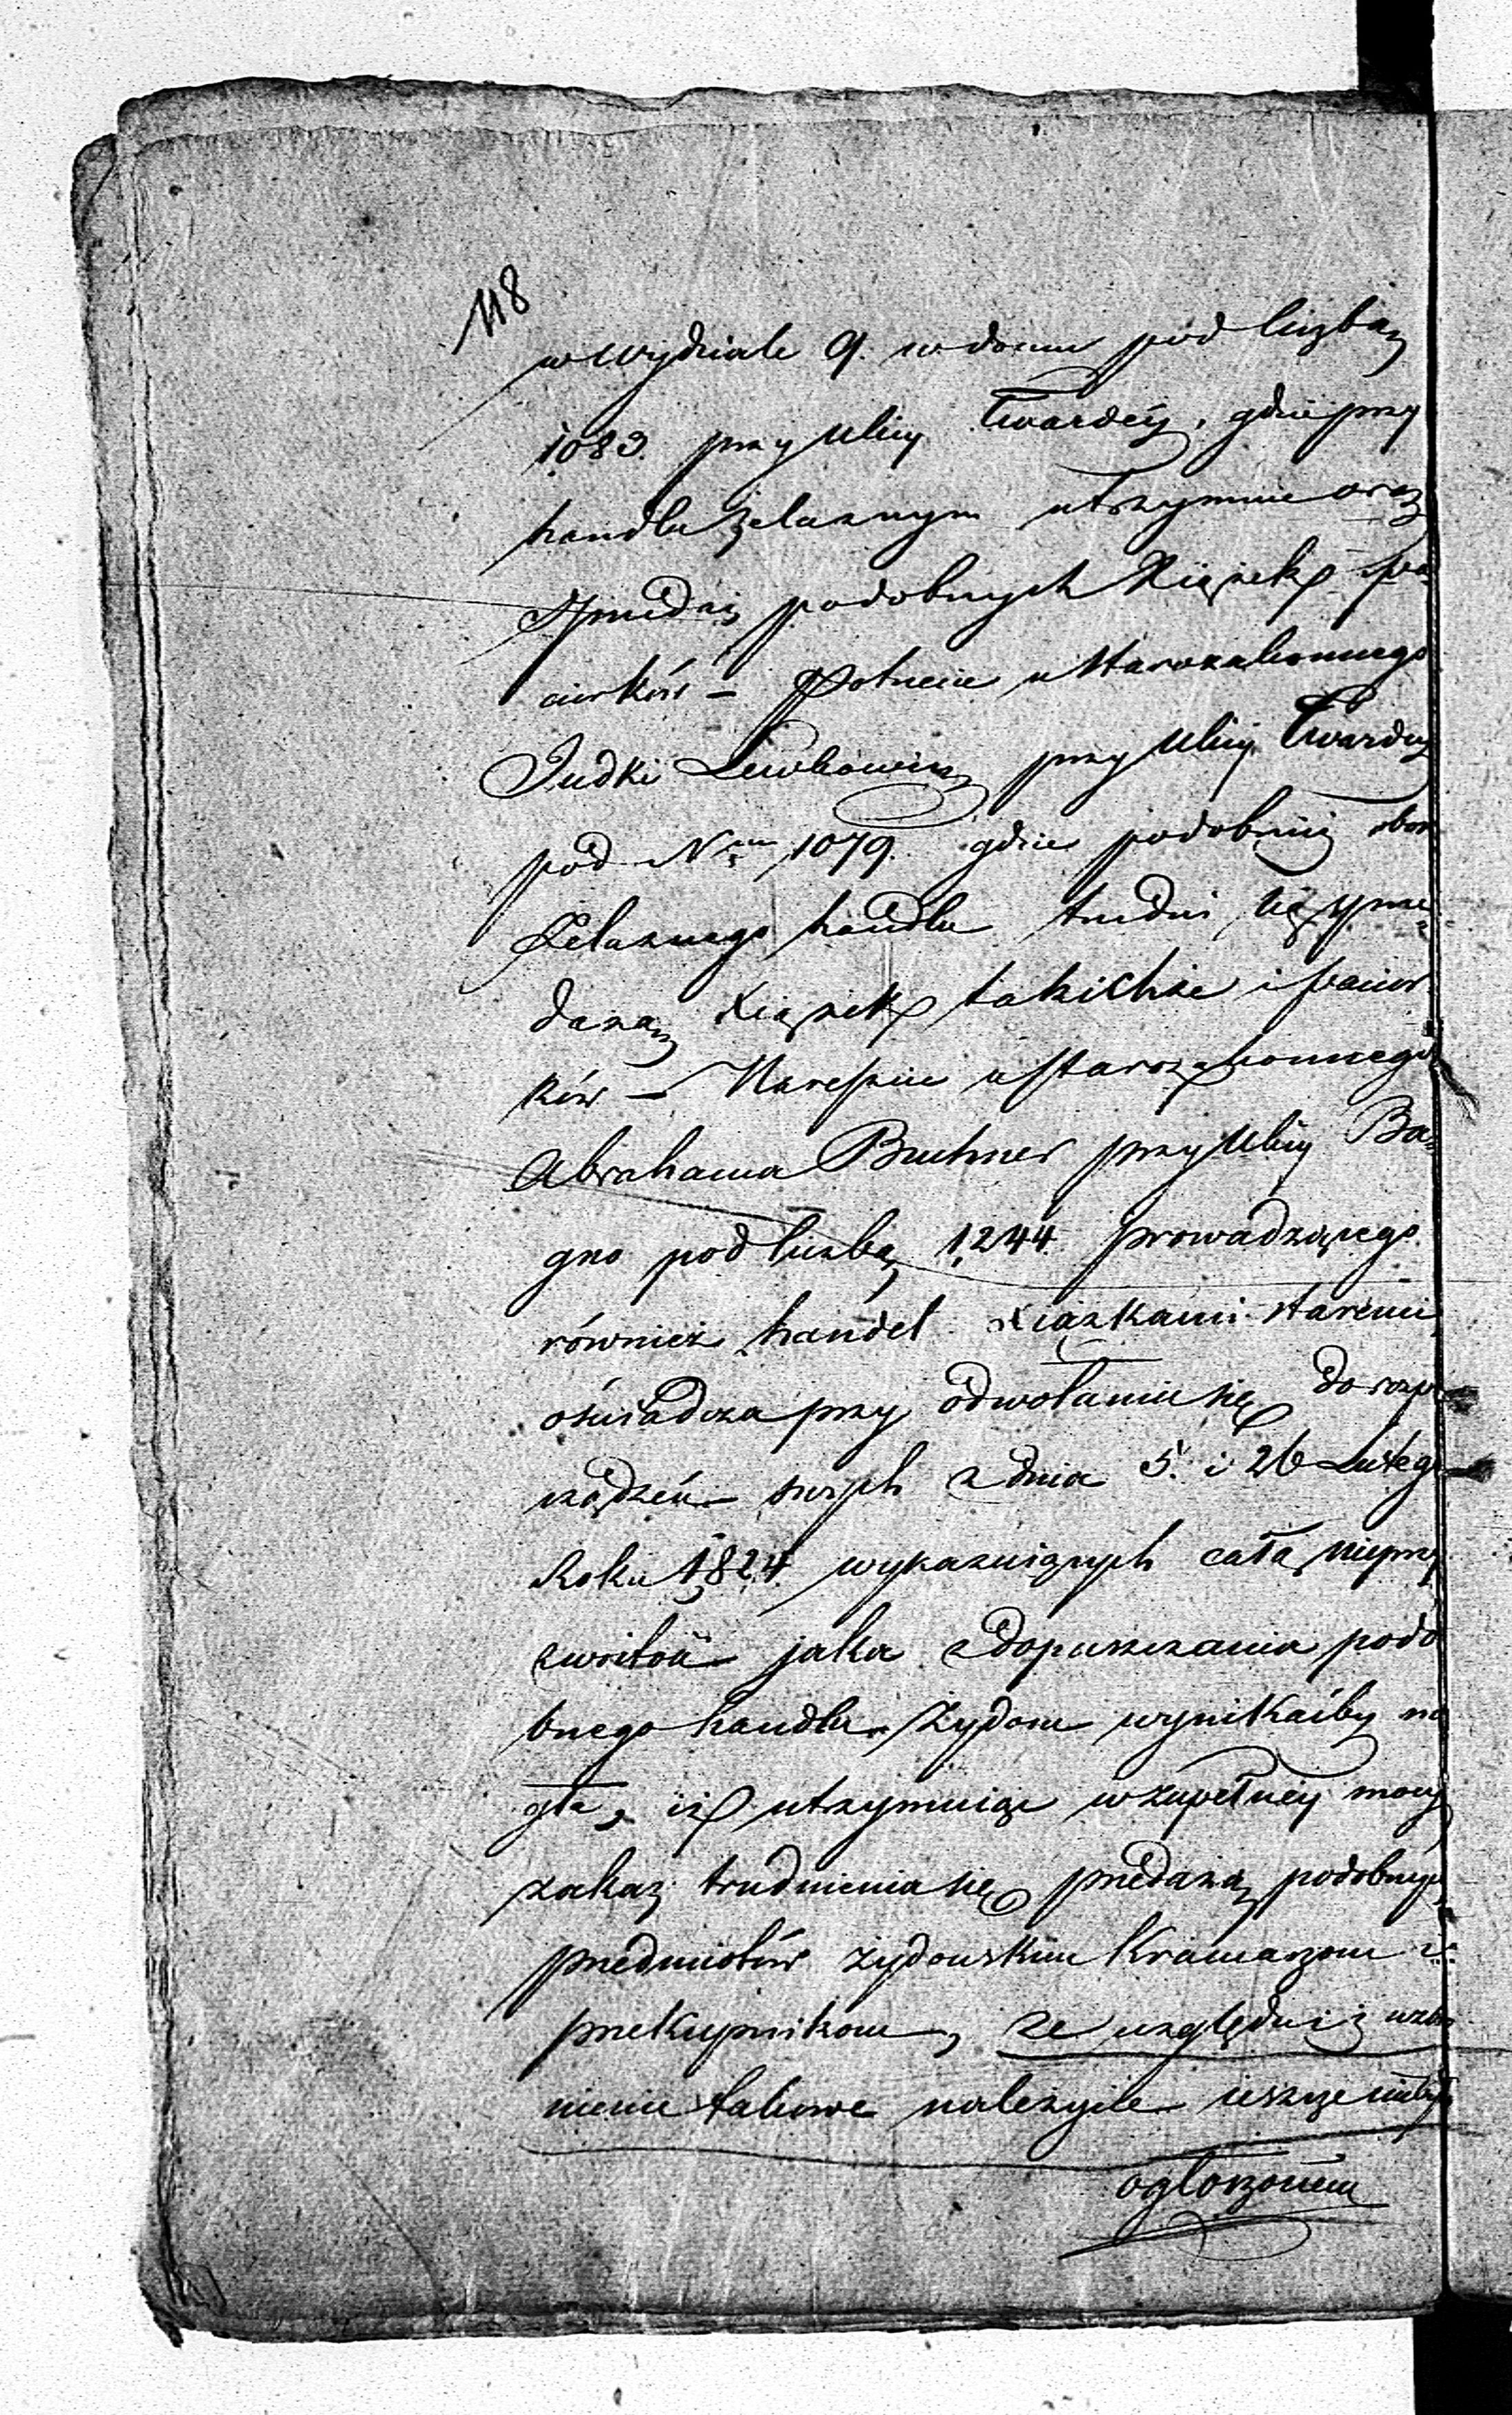 118
w Wydziale 9. w domu pod liczbą
1083. przy Ulicy Twardéy, gdzie przy
handlu żelaznym utrzymuie oraz
sprzedaż podobnych Xiążek i pa
ciorków – Potwem u Starozakonnego
Judki Lewkowicz przy Ulicy Twardey
pod Nrem 1079. gdzie podobnież obok
Żelaznego handlu trudni się sprze
dażą Xiążek takichże i pacior
ków – Nareszcie u Starozakonnego
Abrahama Buchner przy Ulicy Ba
gno pod liczbą 1244 prowadzącego
również handel Xiążkami staremi,
oświadcza przy odwołaniu się do rozpo
rządzeń swych z dnia 5. i 26 Lutego
Roku 1824. wykazuiących całą nieprzy
zwoitość jaka z dopuszczania podo
bnego handlu Żydom wynikaćby mo
gła, iż utrzymuiąc w zupełney mocy
zakaz trudnienia się przedażą podobnych
przedmiotów żydowskim Kramarzom i
przekupnikom, ze względu iż wzbro
nienie takowe należycie ieszcze niebyło
ogłoszonem